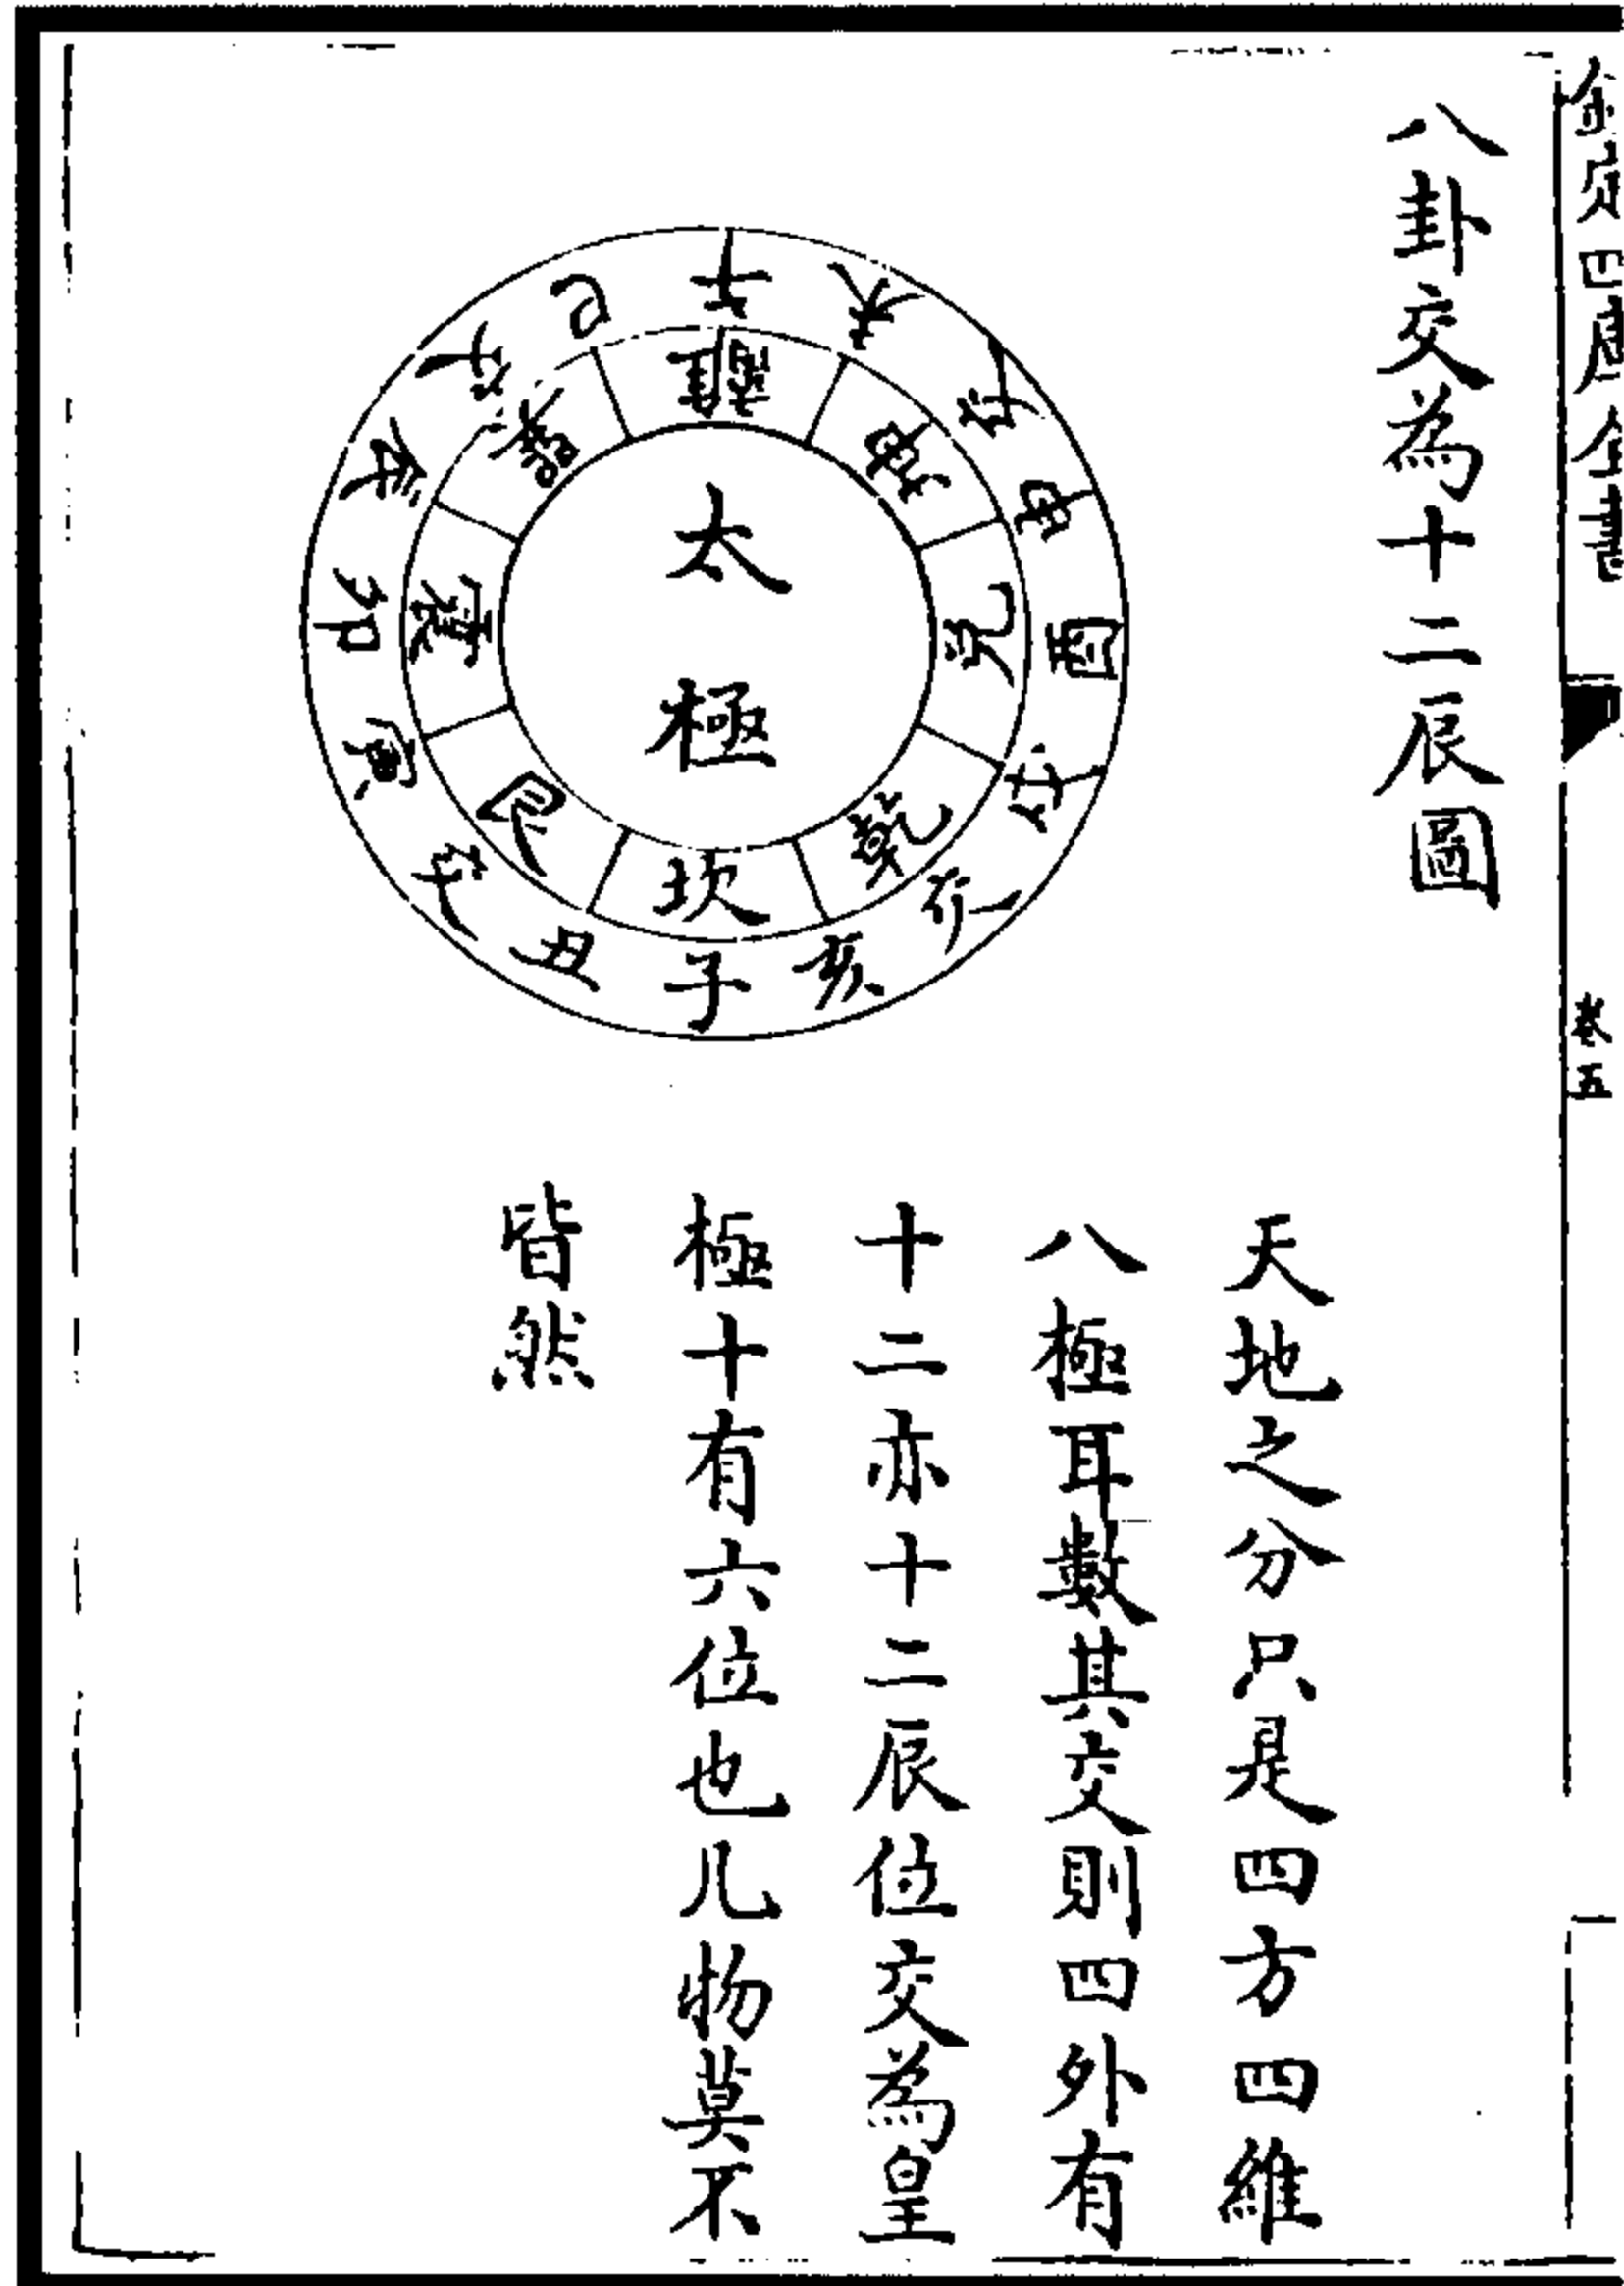 欽定四庫全書
卷五
八卦交為十二辰圖
太極
離
坤
兌
乾
坎
艮
震
巽
午
未
申
酉
戌
亥
子
丑
寅
卯
辰
巳
天地之分只是四方四維
八極耳數其交則四外有
十二亦十二辰位交為皇
極十有六位也凡物莫不
皆然